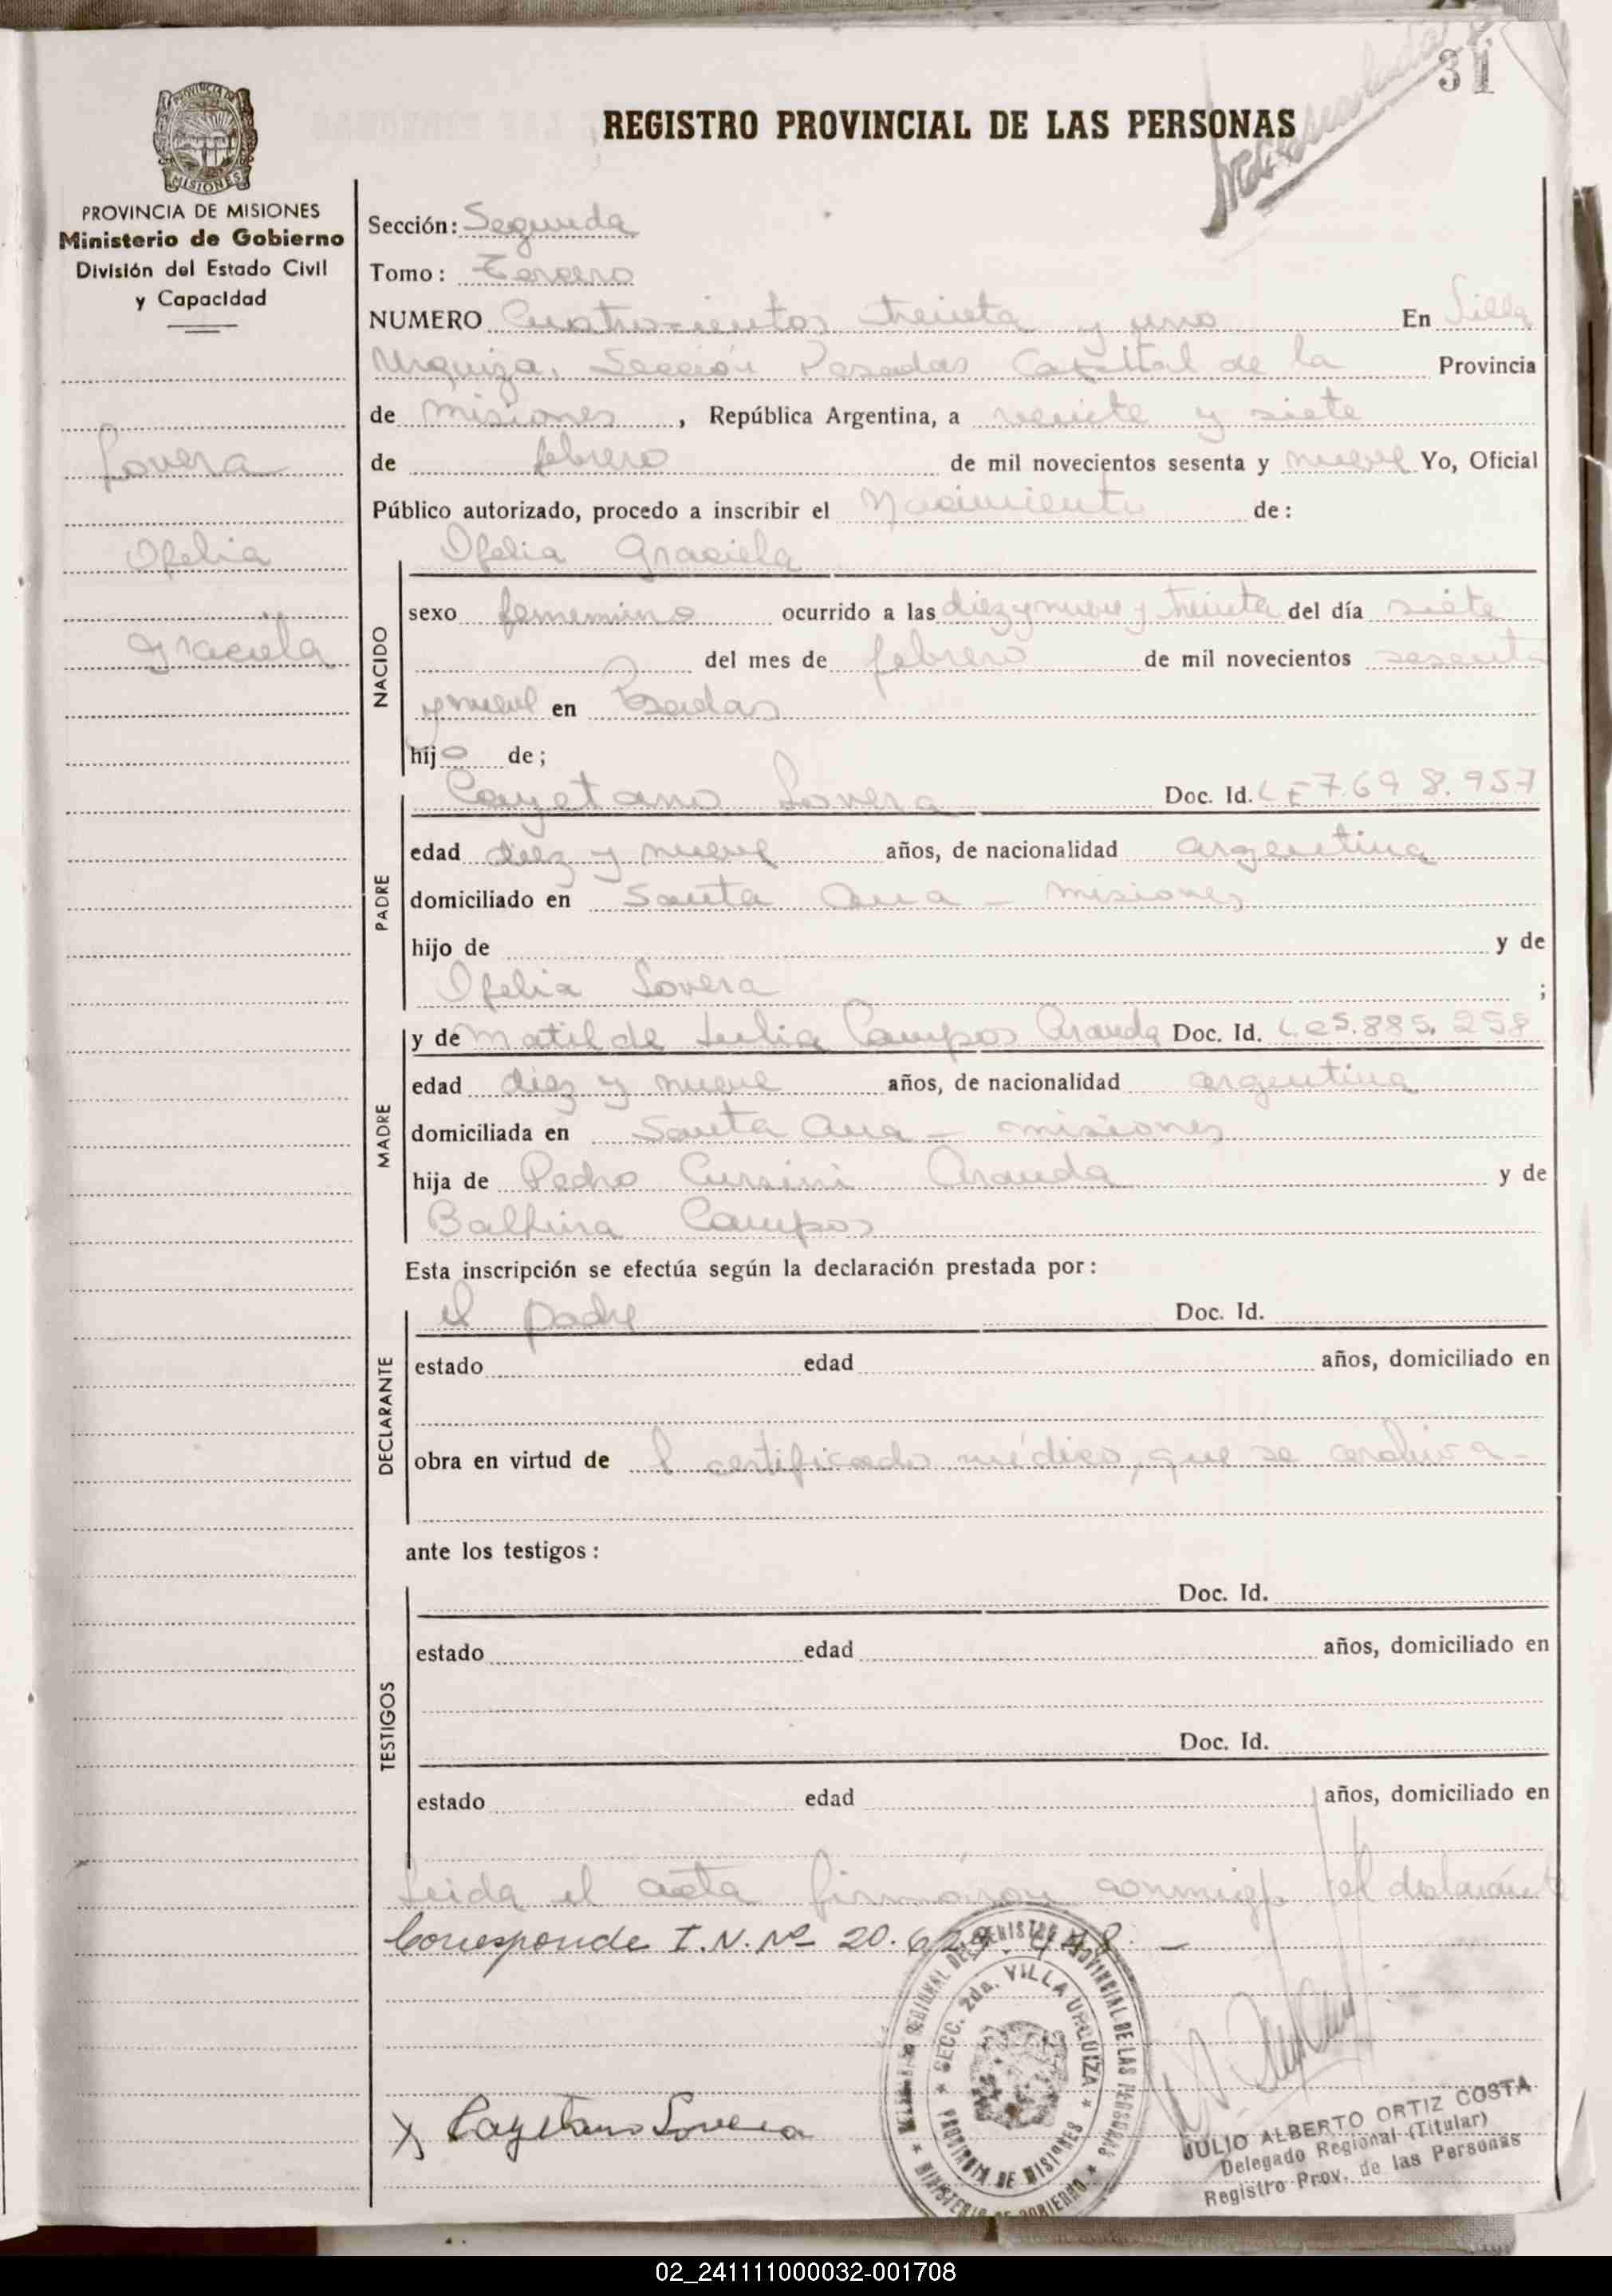 31
REGISTRO PROVINCIAL DE LAS PERSONAS
PROVINCIA DE MISIONES
PROVINCIA DE MISIONES
Ministerio de Gobierno
División del Estado Civil
y Capacidad
Lovera
Ofelia
Graciela
Sección: Segunda
Tomo: Tercero
NUMERO Cuatrocientos treinta y uno En Villa
Urquiza, Sección Posadas Capital de la Provincia
de Misiones, República Argentina, a veinte y siete
de febrero de mil novecientos sesenta y nueve Yo, Oficial
Público autorizado, procedo a inscribir el Nacimiento de:
Ofelia Graciela
NACIDO
sexo femenino ocurrido a las diez y nueve y treinta del día siete
del mes de febrero de mil novecientos sesenta
y nueve en Posadas
hijo de;
PADRE
Cayetano Lovera Doc. Id. LE 7.698.957
edad diez y nueve años, de nacionalidad argentina
domiciliado en Santa Ana - Misiones
hijo de y de
Ofelia Lovera ;
MADRE
y de Matilde Julia Campos Aranda Doc. Id. LC 5.885.258
edad diez y nueve años, de nacionalidad argentina
domiciliada en Santa Ana - Misiones
hija de Pedro Aranda y de
Balbina Campos
Esta inscripción se efectúa según la declaración prestada por:
DECLARANTE
el padre Doc. Id.
estado edad años, domiciliado en
obra en virtud de l certificado médico, que se archiva-
ante los testigos:
TESTIGOS
Doc. Id.
estado edad años, domiciliado en
Doc. Id.
estado edad años, domiciliado en
Leida el acta firmaron conmigo el declarante
Corresponde I. N. Nº 20.
SECC. 2da. VILLA URQUIZA
PROVINCIA DE MISIONES
REGISTRO PROVINCIAL DE LAS PERSONAS
MINISTERIO DE GOBIERNO
X Cayetano Lovera
JULIO ALBERTO ORTIZ COSTA
Delegado Regional (Titular)
Registro Prov. de las Personas
02_241111000032-001708